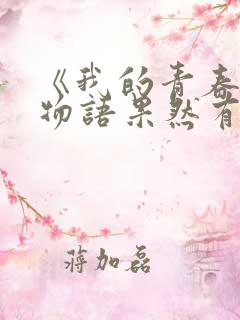 《我的青春
物語果然有
蔣加磊